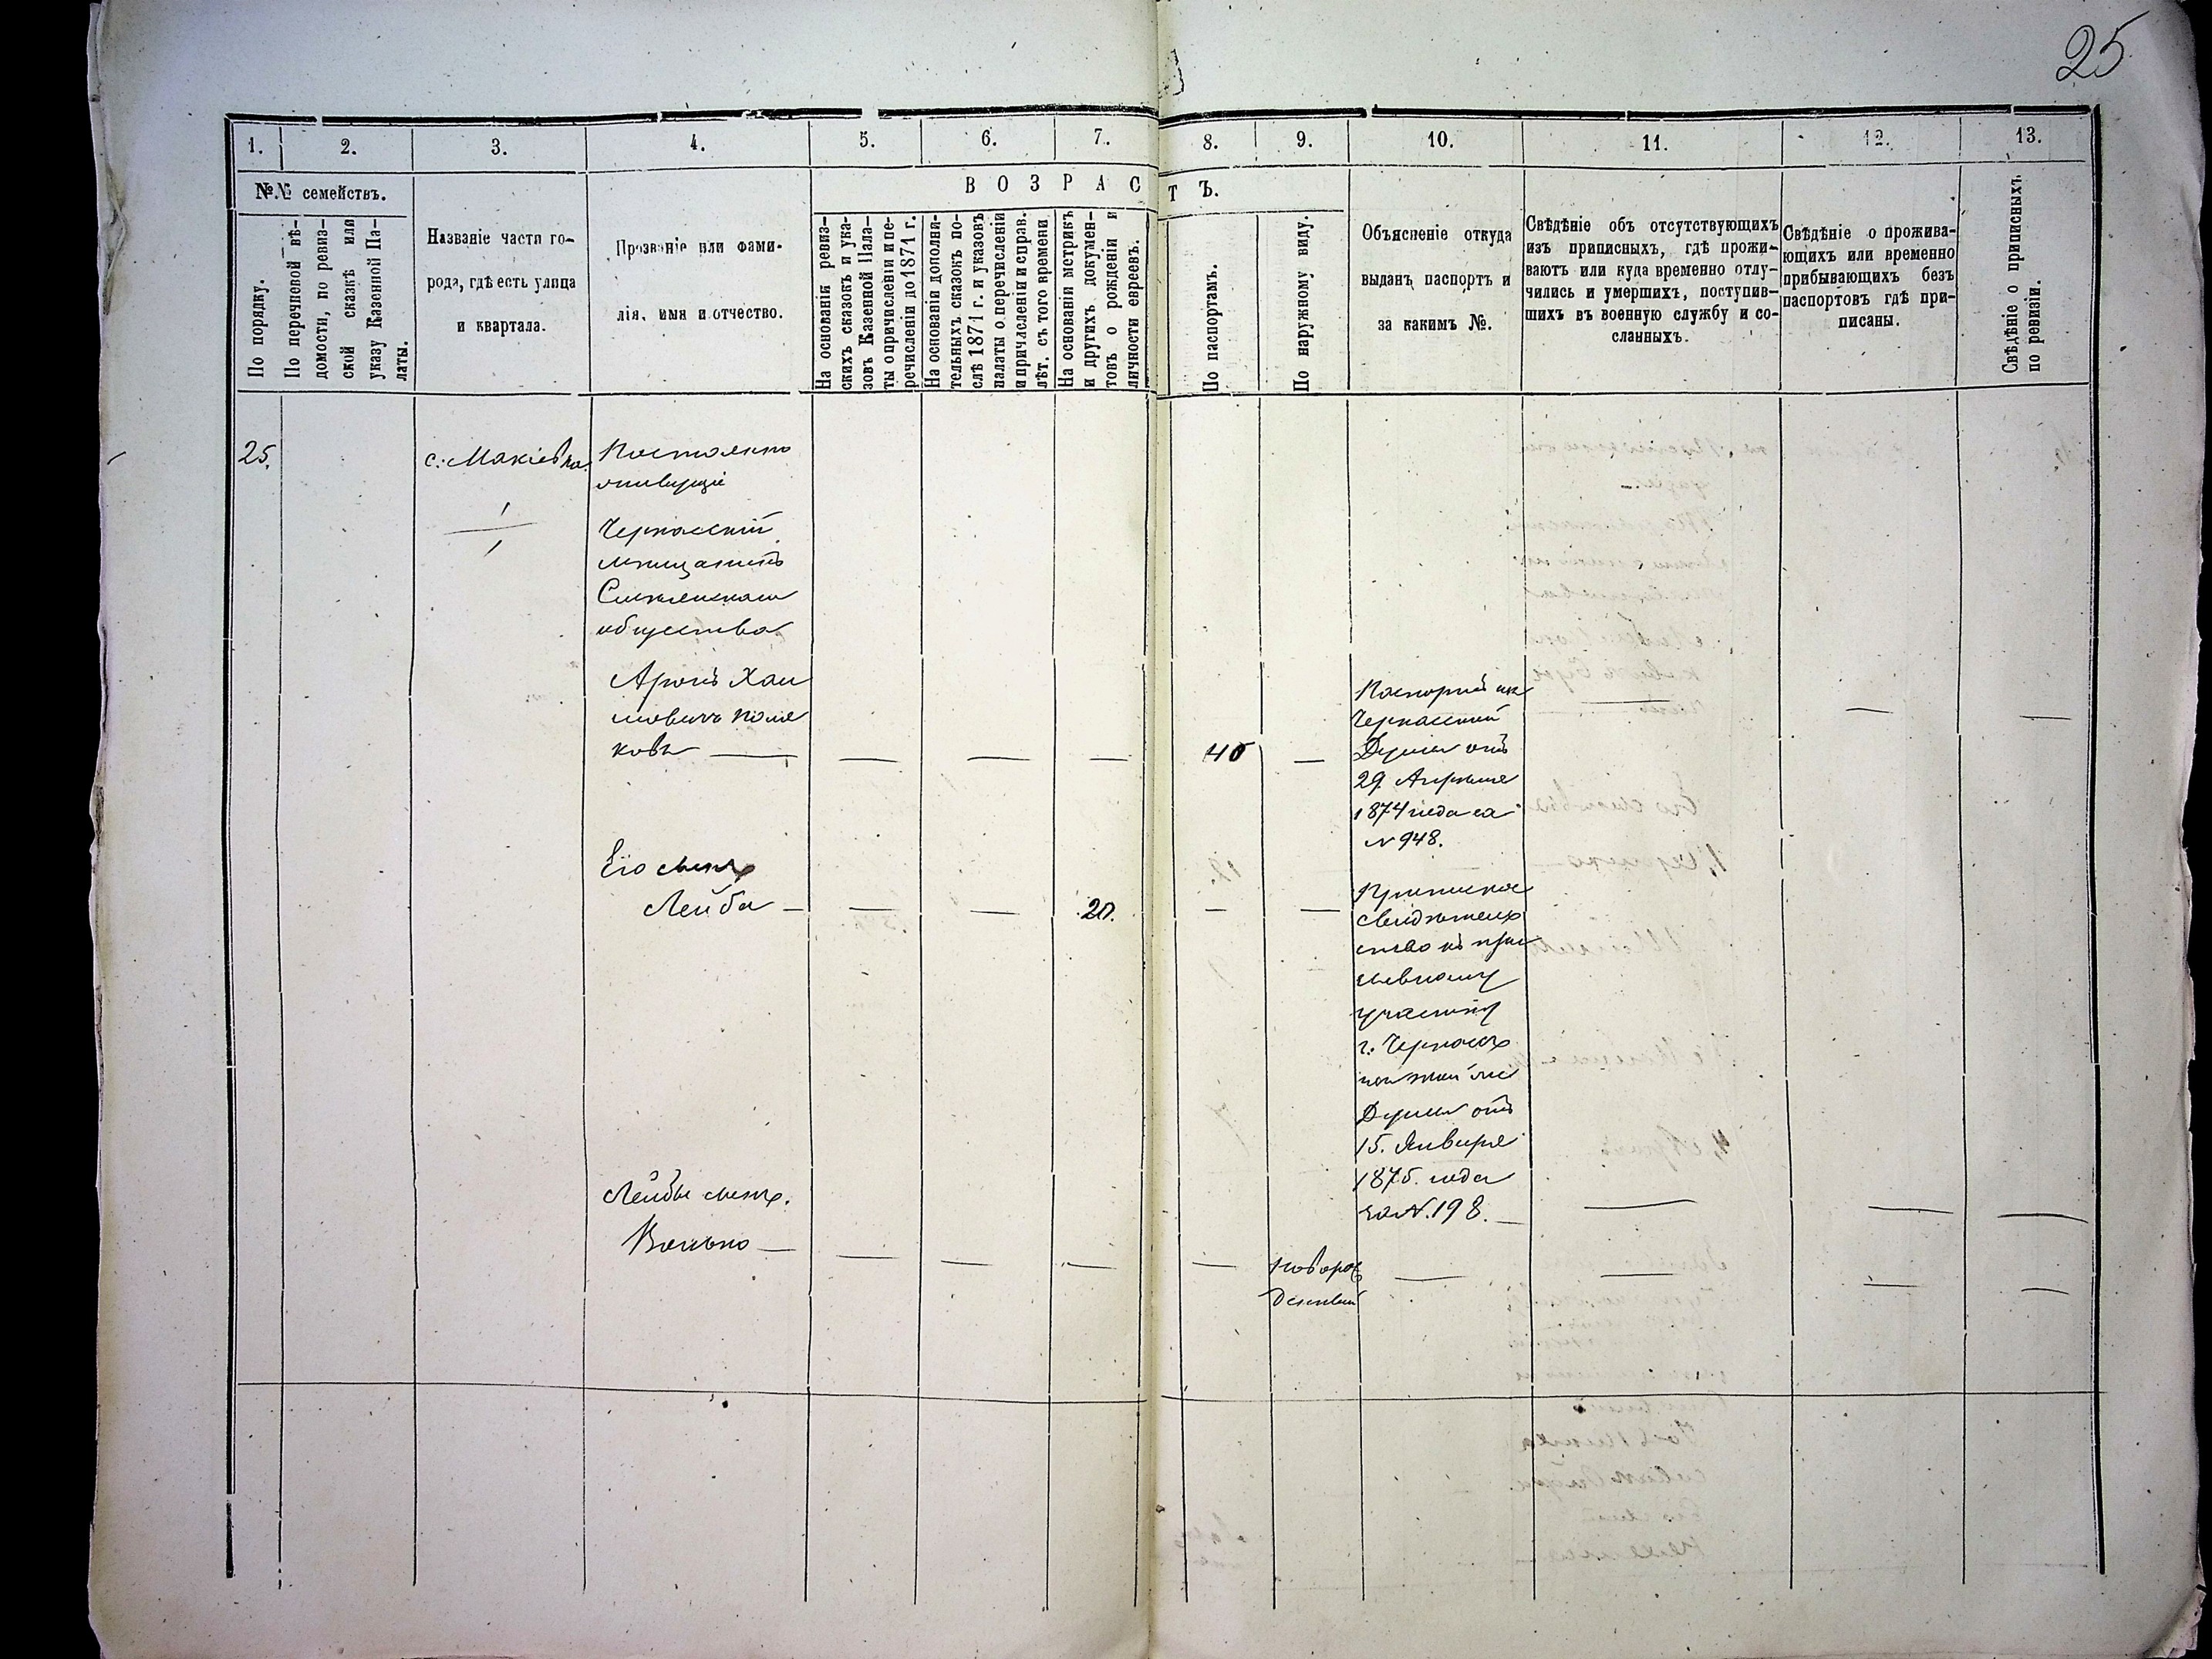 25
1. 2. 3. 4. 5. 6. 7. 8. 9. 10. 11. 12. 13.
№№ семействъ.
По порядку.
По перечневой вѣ-
домости, по ревиз-
ской сказкѣ или
указу Казенной Па-
латы.
Названіе части го-
рода, гдѣ есть улица
и квартала.
Прозваніе или фами-
лія, имя и отчество.
ВОЗРАСТЪ.
На основаніи ревиз-
скихъ сказокъ и ука-
зовъ Казенной Пала-
ты о причисленіи и пе-
речисленіи до 1871 г.
На основаніи дополни-
тельныхъ сказокъ по-
слѣ 1871 г. и указовъ
палаты о перечисленіи
и причисленіи и справ.
лѣт. съ того времени.
На основаніи метрикъ
и другихъ докумен-
товъ о рожденіи и
личности евреевъ.
По паспортамъ.
По наружному виду.
Объясненіе откуда
выданъ паспортъ и
за какимъ №.
Свѣдѣніе объ отсутствующихъ
изъ приписныхъ, гдѣ прожи-
ваютъ или куда временно отлу-
чились и умершихъ, поступив-
шихъ въ военную службу и со-
сланныхъ.
Свѣдѣніе о прожива-
ющихъ или временно
прибывающихъ безъ
паспортовъ гдѣ при-
писаны.
Свѣдѣніе о приписныхъ
по ревизіи.
25. с. Макіевка. Постоянно
живущіе
Черкасскій
мѣщанинъ
Смѣлянскаго
общества
Аронъ Хаи
мовичъ Поля
ковъ — — — — 40 —
Паспортъ изъ
Черкасской
Думы отъ
29 Апрѣля
1874 года за
№ 948.
— — —
Его сынъ
Лейба — — — 20. — —
Приписное
свидѣтель
ство къ при
зывному
участку
г. Черкасъ
Думы отъ
15. Января
1875. года
за №. 198. —
— — —
Лейбы сынъ.
Волько — — — — —
Новорож
денный
— — — —